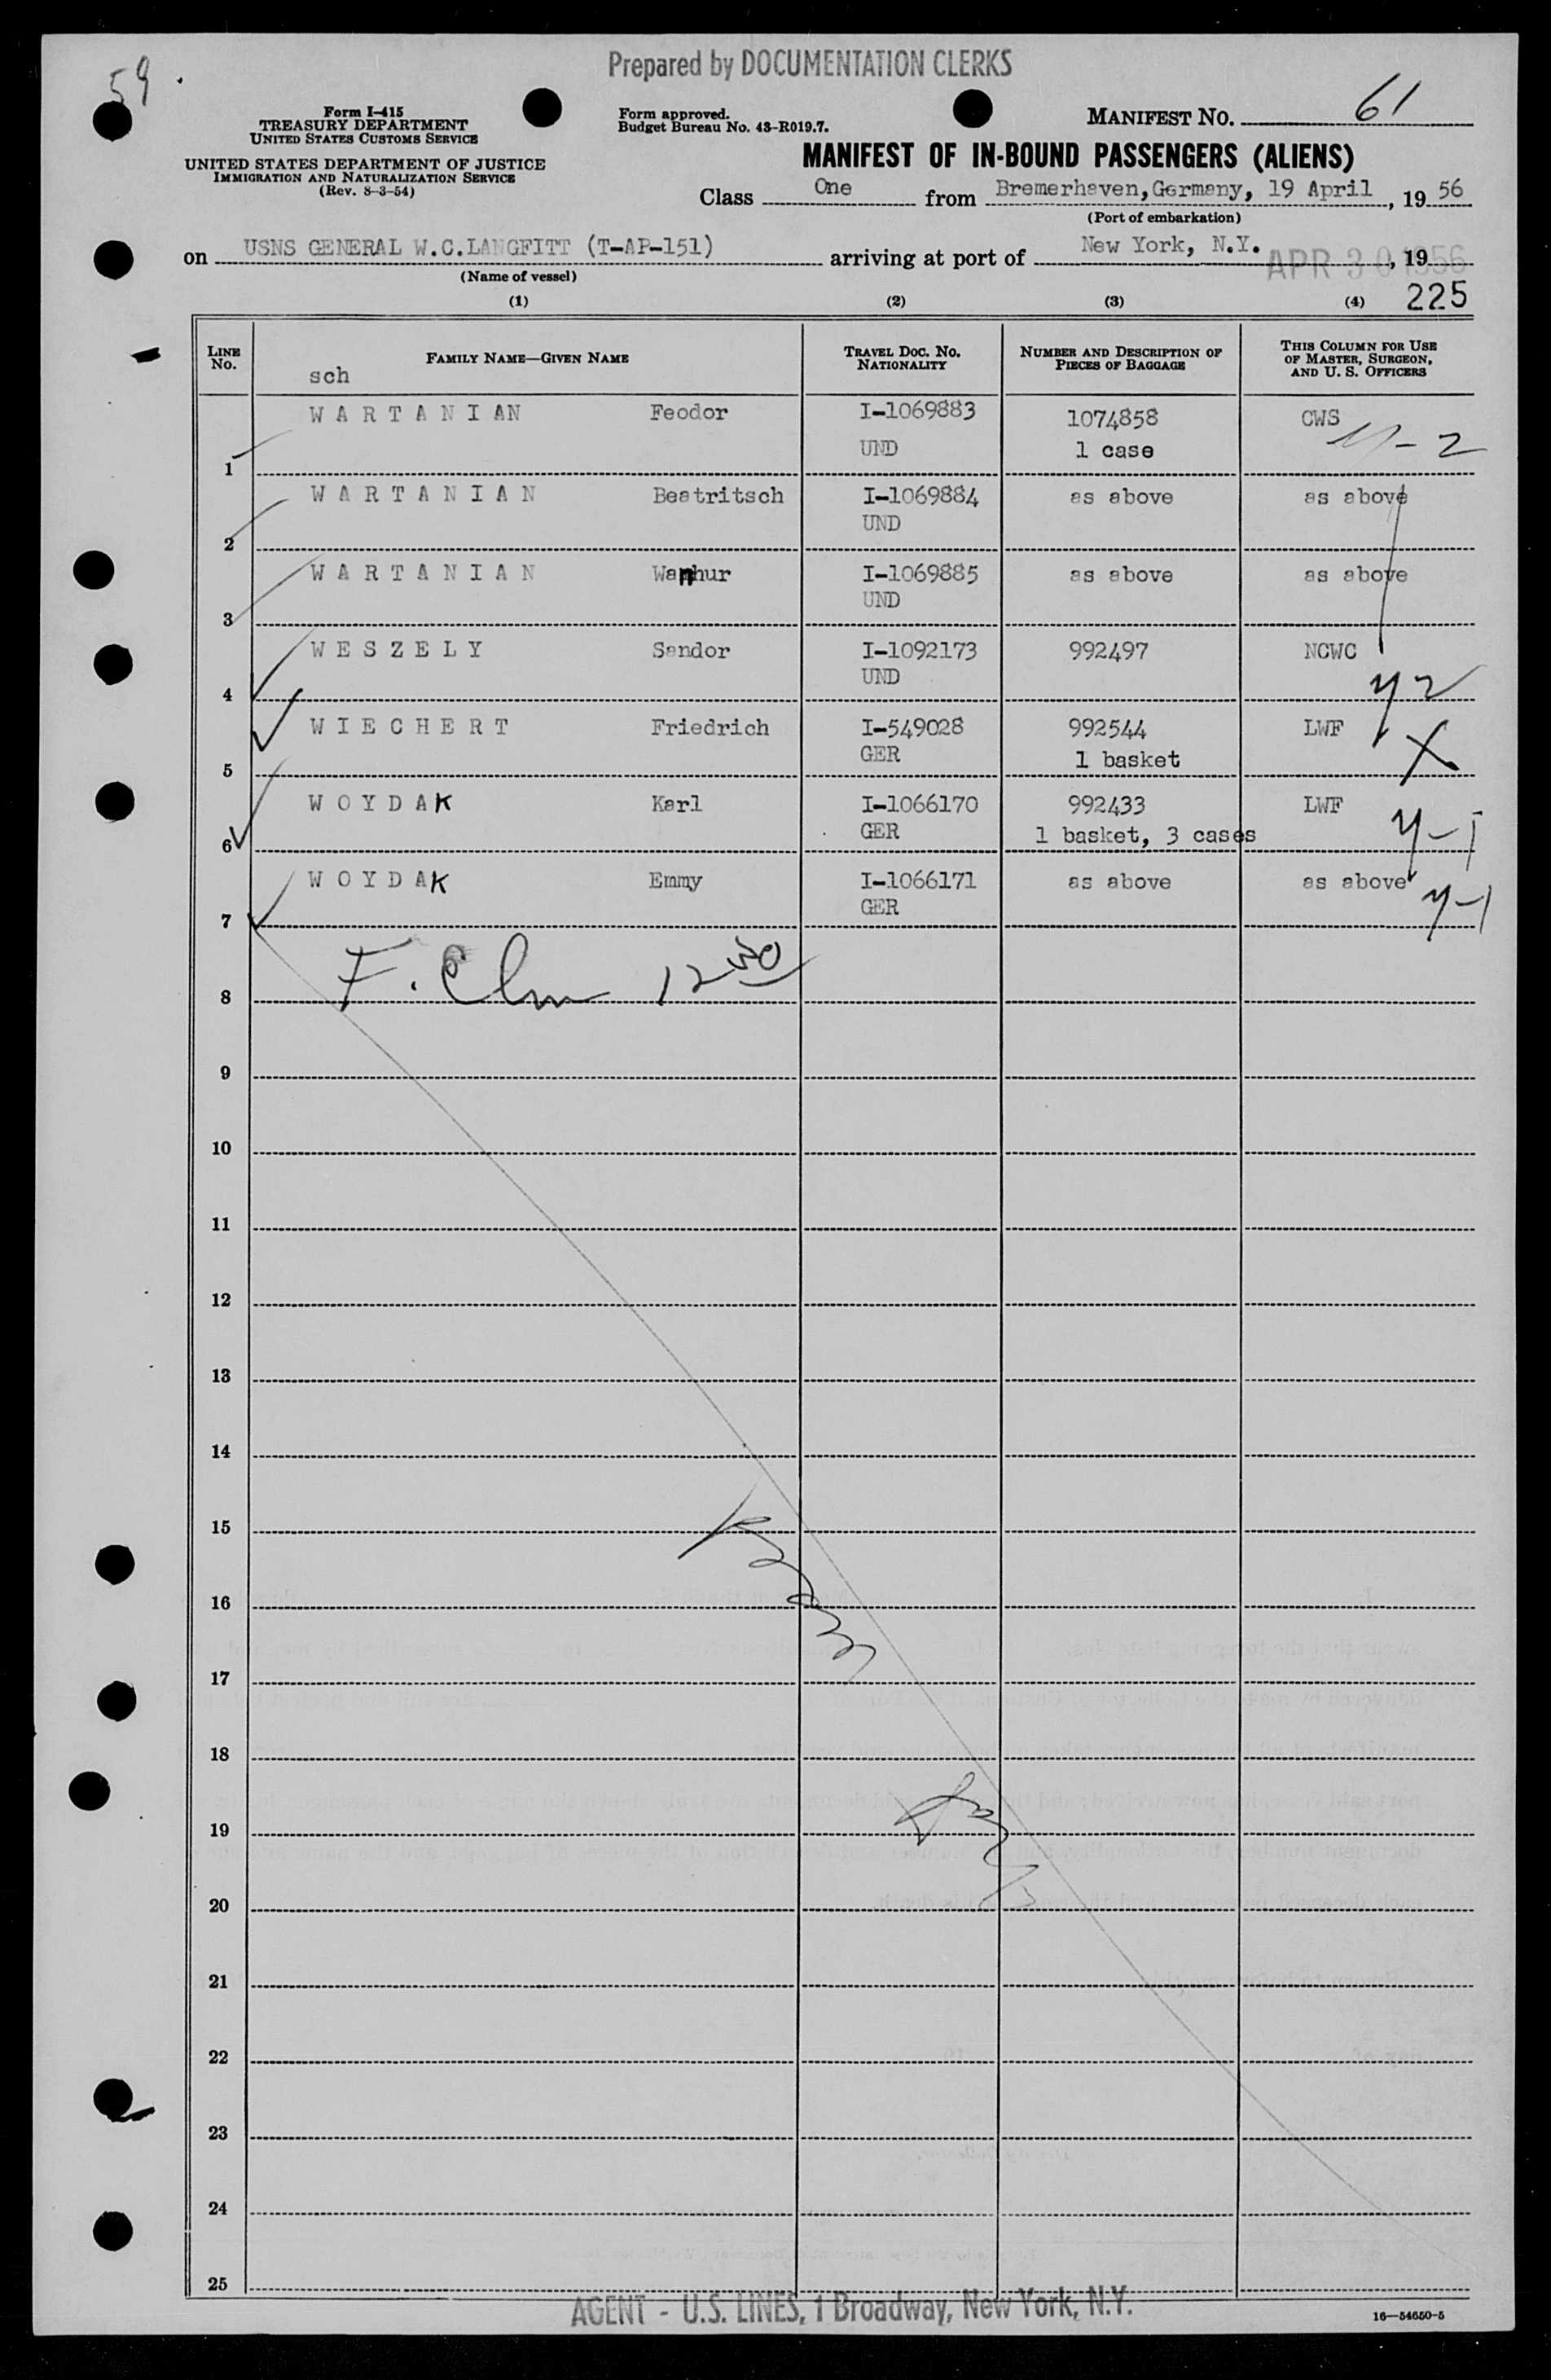 59
Prepared by DOCUMENTATION CLERKS
Form I-415
TREASURY DEPARTMENT
UNITED STATES CUSTOMS SERVICE
UNITED STATES DEPARTMENT OF JUSTICE
IMMIGRATION AND NATURALIZATION SERVICE
(Rev. 8-3-54)
Form approved.
Budget Bureau No. 43-R019.7.
MANIFEST NO. 61
MANIFEST OF IN-BOUND PASSENGERS (ALIENS)
Class One from Bremerhaven, Germany, 19 April, 19 56
(Port of embarkation)
on USNS GENERAL W.C.LANGFITT (T-AP-151) arriving at port of New York, N.Y. APR 30 1956, 19
(Name of vessel)
(1) (2) (3) (4) 225
LINE No. FAMILY NAME—GIVEN NAME TRAVEL DOC. NO. NATIONALITY NUMBER AND DESCRIPTION OF PIECES OF BAGGAGE THIS COLUMN FOR USE OF MASTER, SURGEON, AND U. S. OFFICERS
sch
WARTANIAN Feodor I-1069883 1074858 CWS
1 UND 1 case -2
WARTANIAN Beatritsch I-1069884 as above as above
2 UND
WARTANIAN I-1069885 as above as above
3 UND
WESZELY Sandor I-1092173 992497 NCWC
4 UND
WIECHERT Friedrich I-549028 992544 LWF
5 GER 1 basket X
WOYDAK Karl I-1066170 992433 LWF
6 GER 1 basket, 3 cases y-1
WOYDAK Emmy I-1066171 as above as above
7 GER y-1
F. Elm 12 30
8
9
10
11
12
13
14
15
16
17
18
19
20
21
22
23
24
25
AGENT - U.S. LINES, 1 Broadway, New York, N.Y.
16—54650-5